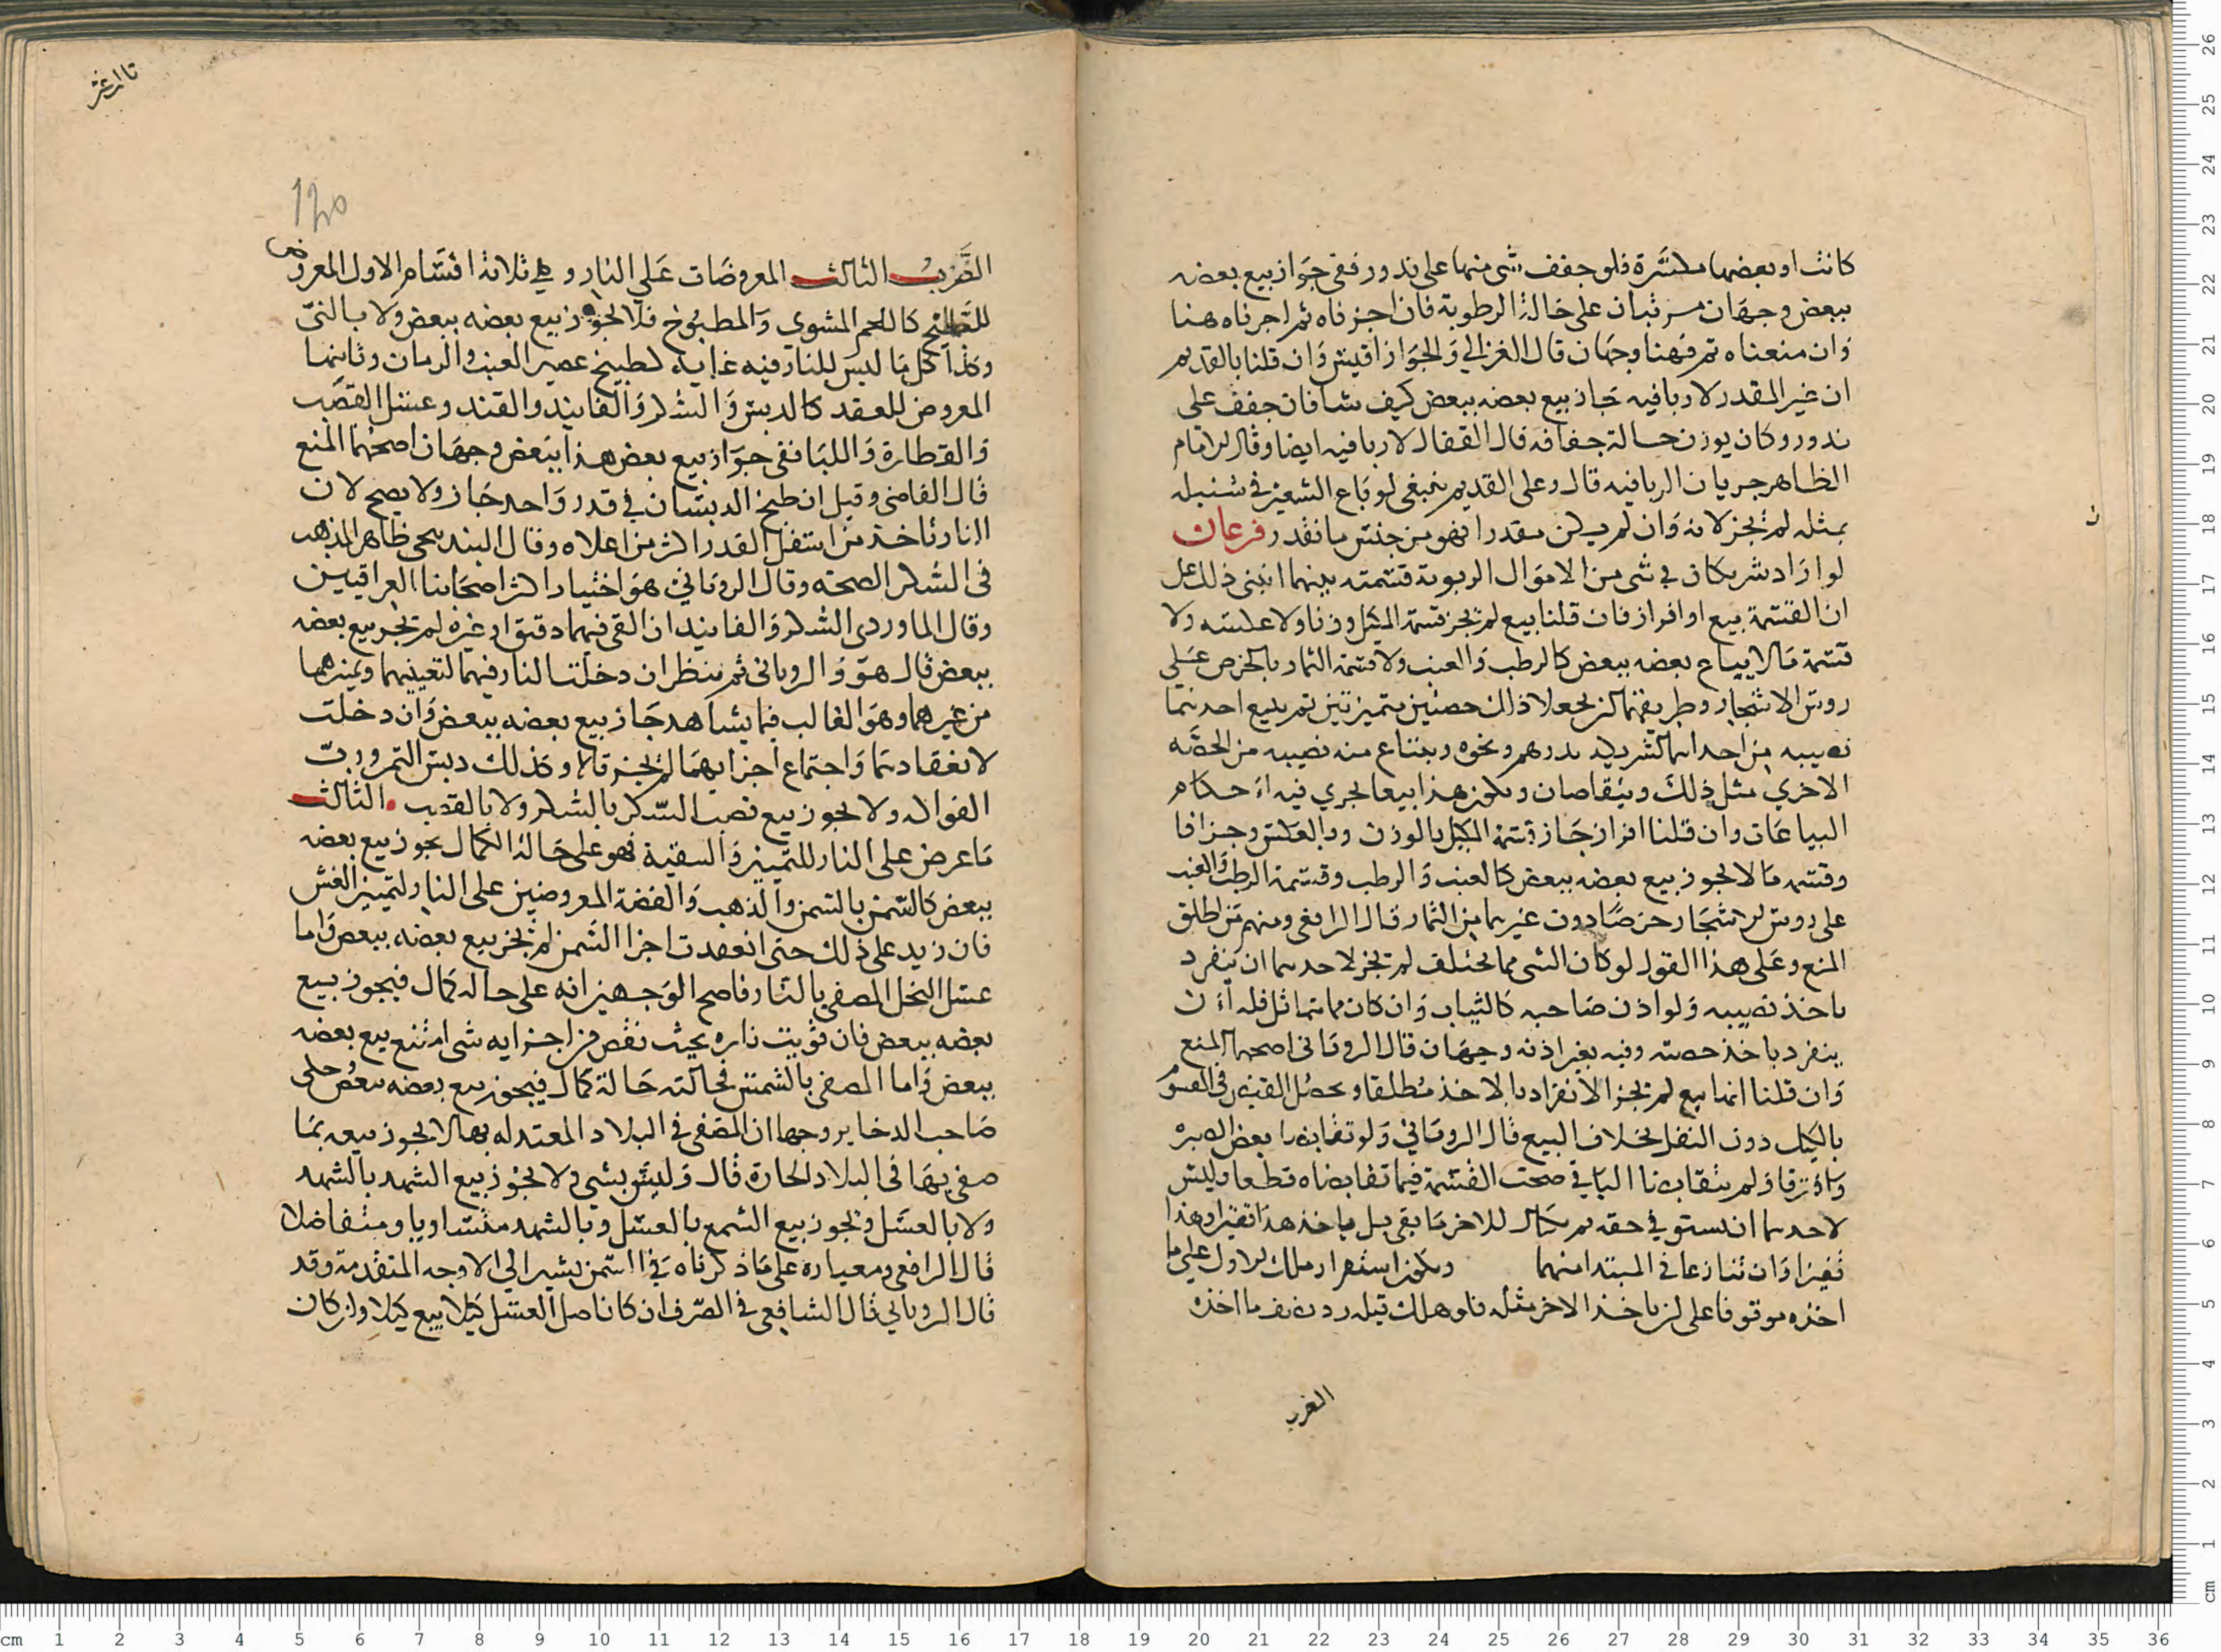 كانت او بعضها مكسرة فلو جفف شى منها على ندور ففى جواز بيع بعضه
ببعض وجهان مرتبان على حالة الرطوبة فان اجزناه ثم اجرناه هنا
وان منعناه ثم فهنا وجهان قال الغزالي والجواز اقيس وان قلنا بالقديم
ان غير المقدر لا ربا فيه جاز بيع بعضه ببعض كيف شا فان جفف على
ندور وكان يوزن حالة جفافه قال القفال لا ربا فيه ايضا وقال الامام
الظاهر جريان الربا فيه قال وعلى القديم ينبغى لو باع الشعير في سنبله
بمثله لم يجز لانه وان لم يكن مقدرا فهو من جنس ما تقدر فرعان
لو اراد شريكان في شى من الاموال الربوية قسمته بينهما انبنى ذلك على
ان القسمة بيع او افراز فان قلنا بيع لم تجز قسمة المكيل وزنا ولا عكسه ولا
قسمة مالا يباع بعضه ببعض كالرطب والعنب ولا قسمة الثمار بالخرص على
روس الاشجار وطريقهما ان يجعلا ذلك حصتين متميزتين ثم يبيع احدهما
نصيبه من احداهما لشريكه بدرهم ونحوه ويبتاع منه نصيبه من الحصه
الاخري بمثل ذلك ويتقاصان ويكون هذا بيعا يجري فيه احكام
البياعات وان قلنا افراز جاز قسمة المكيل بالوزن وبالعكس وجزافا
وقسمه ما لا يجوز بيع بعضه ببعض كالعنب والرطب وقسمة الرطب والعنب
على روس الاشجار خرصا دون غيرهما من الثمار قال الرافعى ومنهم من اطلق
المنع وعلى هذا القول لو كان الشى مما يختلف لم يجز لاحدهما ان ينفرد
باخذ نصيبه ولو اذن صاحبه كالثياب وان كان مما تماثل فله ان
ينفرد باخذ حصته وفيه بغير اذنه وجهان قال الرويانى اصحهما المنع
وان قلنا انها بيع لم يجز الانفراد بالاخذ مطلقا ويحصل القبض فى القسمة
بالكيل دون النقل بخلاف البيع قال الروياني ولو تقابضا بعض الصبره
وافترقا ولم يتقابضا الباقي صحت القسمة فيما تقابضاه قطعا وليس
لاحدهما ان يستوفي حقه ثم يكال للاخر ما بقى بل ياخذ هذا قفيزا وهذا
قفيزا وان تنازعا في المبتدا منهما ويكون استقرار ملك الاول على ما
اخذه موقوفا على ان ياخذ الاخر مثله فلو هلك قبله رد نصف ما اخذه
الضرب
تا ارعش
120
الضرب الثالث المعروضات على النار وهي ثلاثة اقسام الاول المعروض
للطبخ كاللحم المشوي والمطبوخ فلا يجوز بيع بعضه ببعض ولا بالنىّ
وكذا كل ما ليس للنار فيه غاية كطبيخ عصير العنب والرمان وثانيها
المعروض للعقد كالدبس والسكر والفانيد والقند وعسل القصب
والقطارة واللبا ففى جواز بيع بعض هذا ببعض وجهان اصحهما المنع
قال القاضى وقيل ان طبخ الدبسان في قدر واحد جاز ولا يصح لان
النار تاخذ من اسفل القدر اكثر من اعلاه وقال البندنيجى ظاهر المذهب
فى السكر الصحه وقال الروياني هو اختيار اكثر اصحابنا العراقيين
وقال الماوردى السكر والفانيد ان القى فيهما دقيق او غيره لم يجز بيع بعضه
ببعض قال هو والرويانى ثم ينظر ان دخلت النار فيهما لتعيينهما وتميزهما
من غيرهما وهو الغالب فيما يشاهد جاز بيع بعضه ببعض وان دخلت
لانعقادهما واجتماع اجزايهما لم يجز قالا وكذلك دبس التمر وربّ
الفواكه ولا يجوز بيع قصب السكر بالسكر ولا بالقصب . الثالث
ما عرض على النار للتمييز والتنقية فهو على حالة الكمال يجوز بيع بعضه
ببعض كالسمن بالسمن والذهب والفضة المعروضين على النار لتمييز الغش
فان زيد على ذلك حتى انعقدت اجزا السمن لم يجز بيع بعضه ببعض واما
عسل النحل المصفى بالنار فاصح الوجهين انه على حاله كمال فيجوز بيع
بعضه ببعض فان قويت ناره بحيث نقص من اجزايه شى امتنع بيع بعضه
ببعض واما المصفى بالشمس فحالته حالة كمال فيجوز بيع بعضه ببعض حكى
صاحب الدخاير وجها ان المصفى في البلاد المعتدله بها لا يجوز بيعه بما
صفى بها فى البلاد الحارة قال وليس بشي ولا يجوز بيع الشهد بالشهد
ولا بالعسل ويجوز بيع الشمع بالعسل وبالشهد متساويا ومتفاضلا
قال الرافعى ومعياره على ما ذكرناه في السمن يشير الي الاوجه المتقدمة وقد
قال الروياني قال الشافعى في الصرف ان كان اصل العسل كيلا يبيع كيلا وان كان